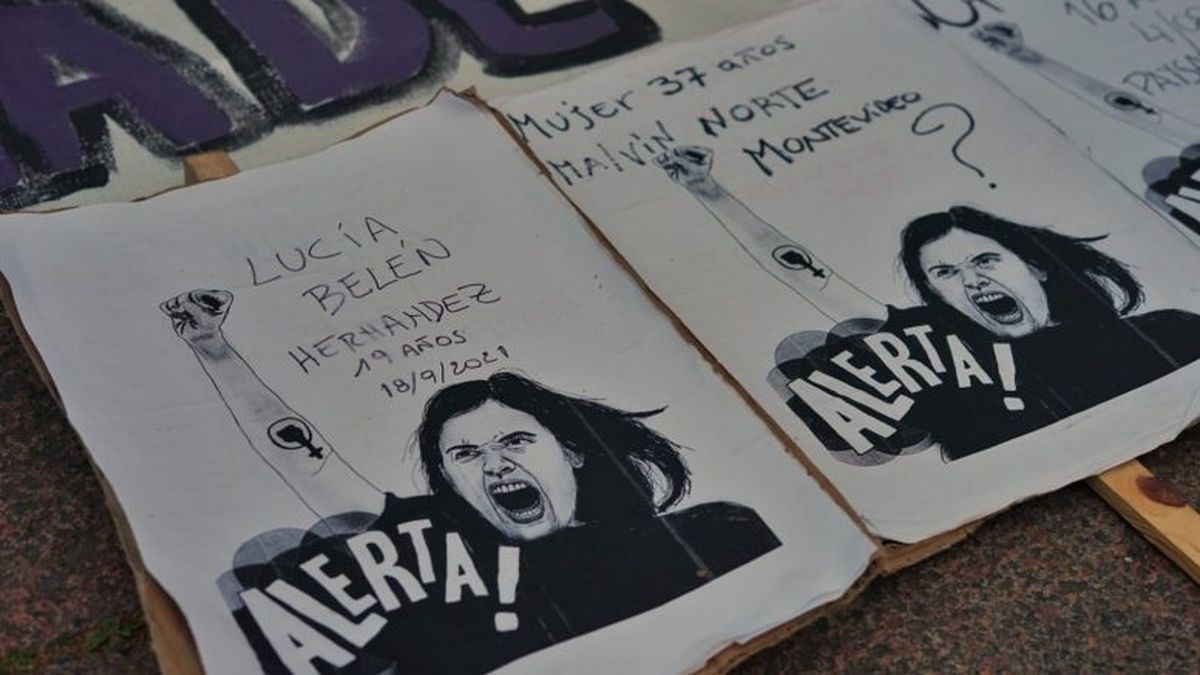 LUCÍA
BELÉN
HERNANDEZ
19 AÑOS
18/9/2021
ALERTA!
Mujer 37 años
MALVÍN NORTE
MONTEVIDEO
?
ALERTA!
16